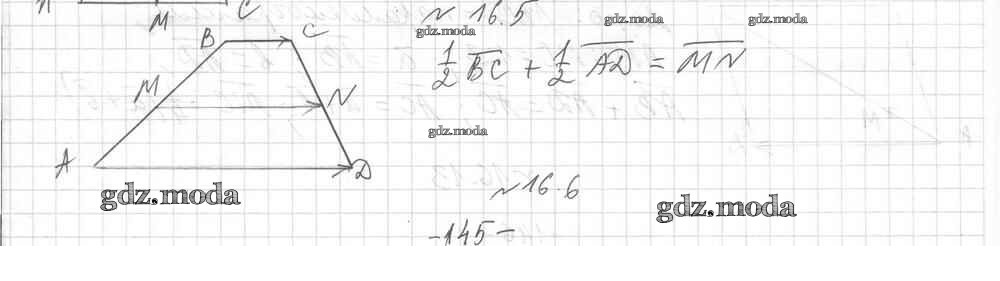 M C
№ 16.5
B C
gdz.moda gdz.moda gdz.moda
1/2 BC + 1/2 AD = MN
M N
gdz.moda
A D
gdz.moda
№ 16.6
gdz.moda
-145-